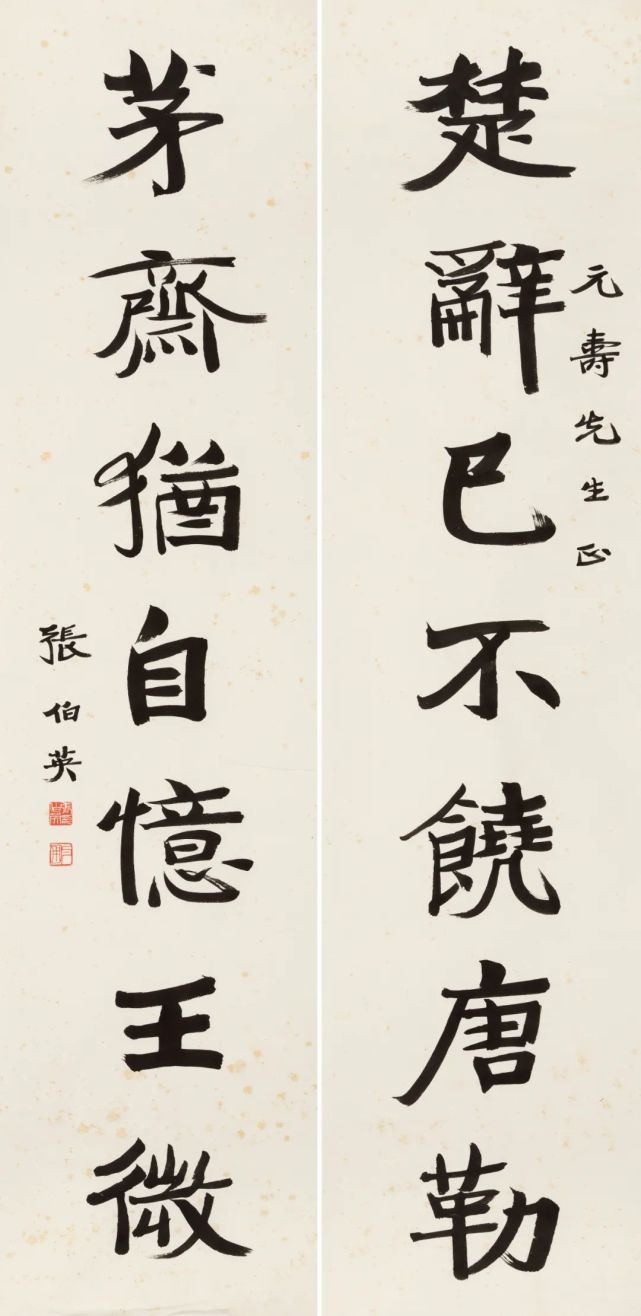 楚辭已不饒唐勒
元壽先生正
茅齋猶自憶王微
張伯英